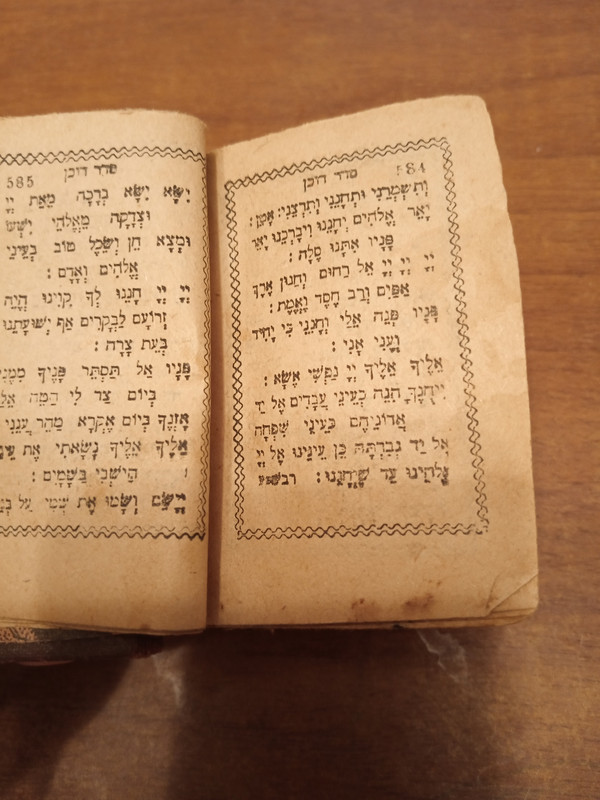 584 סדר דוכן
וְתִשְׁמְרֵנִי וּתְחָנֵּנִי וְתִרְצֵנִי: אָמֵן:
יָאֵר אֱלֹהִים יְחָנֵּנוּ וִיבָרְכֵנוּ יָאֵר
פָּנָיו אִתָּנוּ סֶלָה:
יְיָ יְיָ יְיָ אֵל רַחוּם וְחַנּוּן אֶרֶךְ
אַפַּיִם וְרַב חֶסֶד וֶאֱמֶת:
פָּנָיו פְּנֵה אֵלַי וְחָנֵּנִי כִּי יָחִיד
וְעָנִי אָנִי:
אֵלֶיךָ אֵלֶיךָ יְיָ נַפְשִׁי אֶשָּׂא:
וִיחֻנֶּךָּ הִנֵּה כְעֵינֵי עֲבָדִים אֶל יַד
אֲדוֹנֵיהֶם כְּעֵינֵי שִׁפְחָה
אֶל יַד גְּבִרְתָּהּ כֵּן עֵינֵינוּ אֶל יְיָ
אֱלֹהֵינוּ עַד שֶׁיְּחָנֵּנוּ: רבש״ע
סדר דוכן 585
יִשָּׂא יִשָּׂא בְרָכָה מֵאֵת יְיָ
וּצְדָקָה מֵאֱלֹהֵי יִשְׁעוֹ
וּמְצָא חֵן וְשֵׂכֶל טוֹב בְּעֵינֵי
אֱלֹהִים וְאָדָם:
יְיָ יְיָ חָנֵּנוּ לְךָ קִוִּינוּ הֱיֵה
זְרוֹעָם לַבְּקָרִים אַף יְשׁוּעָתֵנוּ
בְּעֵת צָרָה:
פָּנָיו אַל תַּסְתֵּר פָּנֶיךָ מִמֶּנִּי
בְּיוֹם צַר לִי הַטֵּה אֵלַי
אָזְנֶךָ בְּיוֹם אֶקְרָא מַהֵר עֲנֵנִי
אֵלֶיךָ אֵלֶיךָ נָשָׂאתִי אֶת
הַיּשְׁבִי בַּשָּׁמָיִם:
וְיָשֵׂם וְשָׂמוּ אֶת שְׁמִי עַל